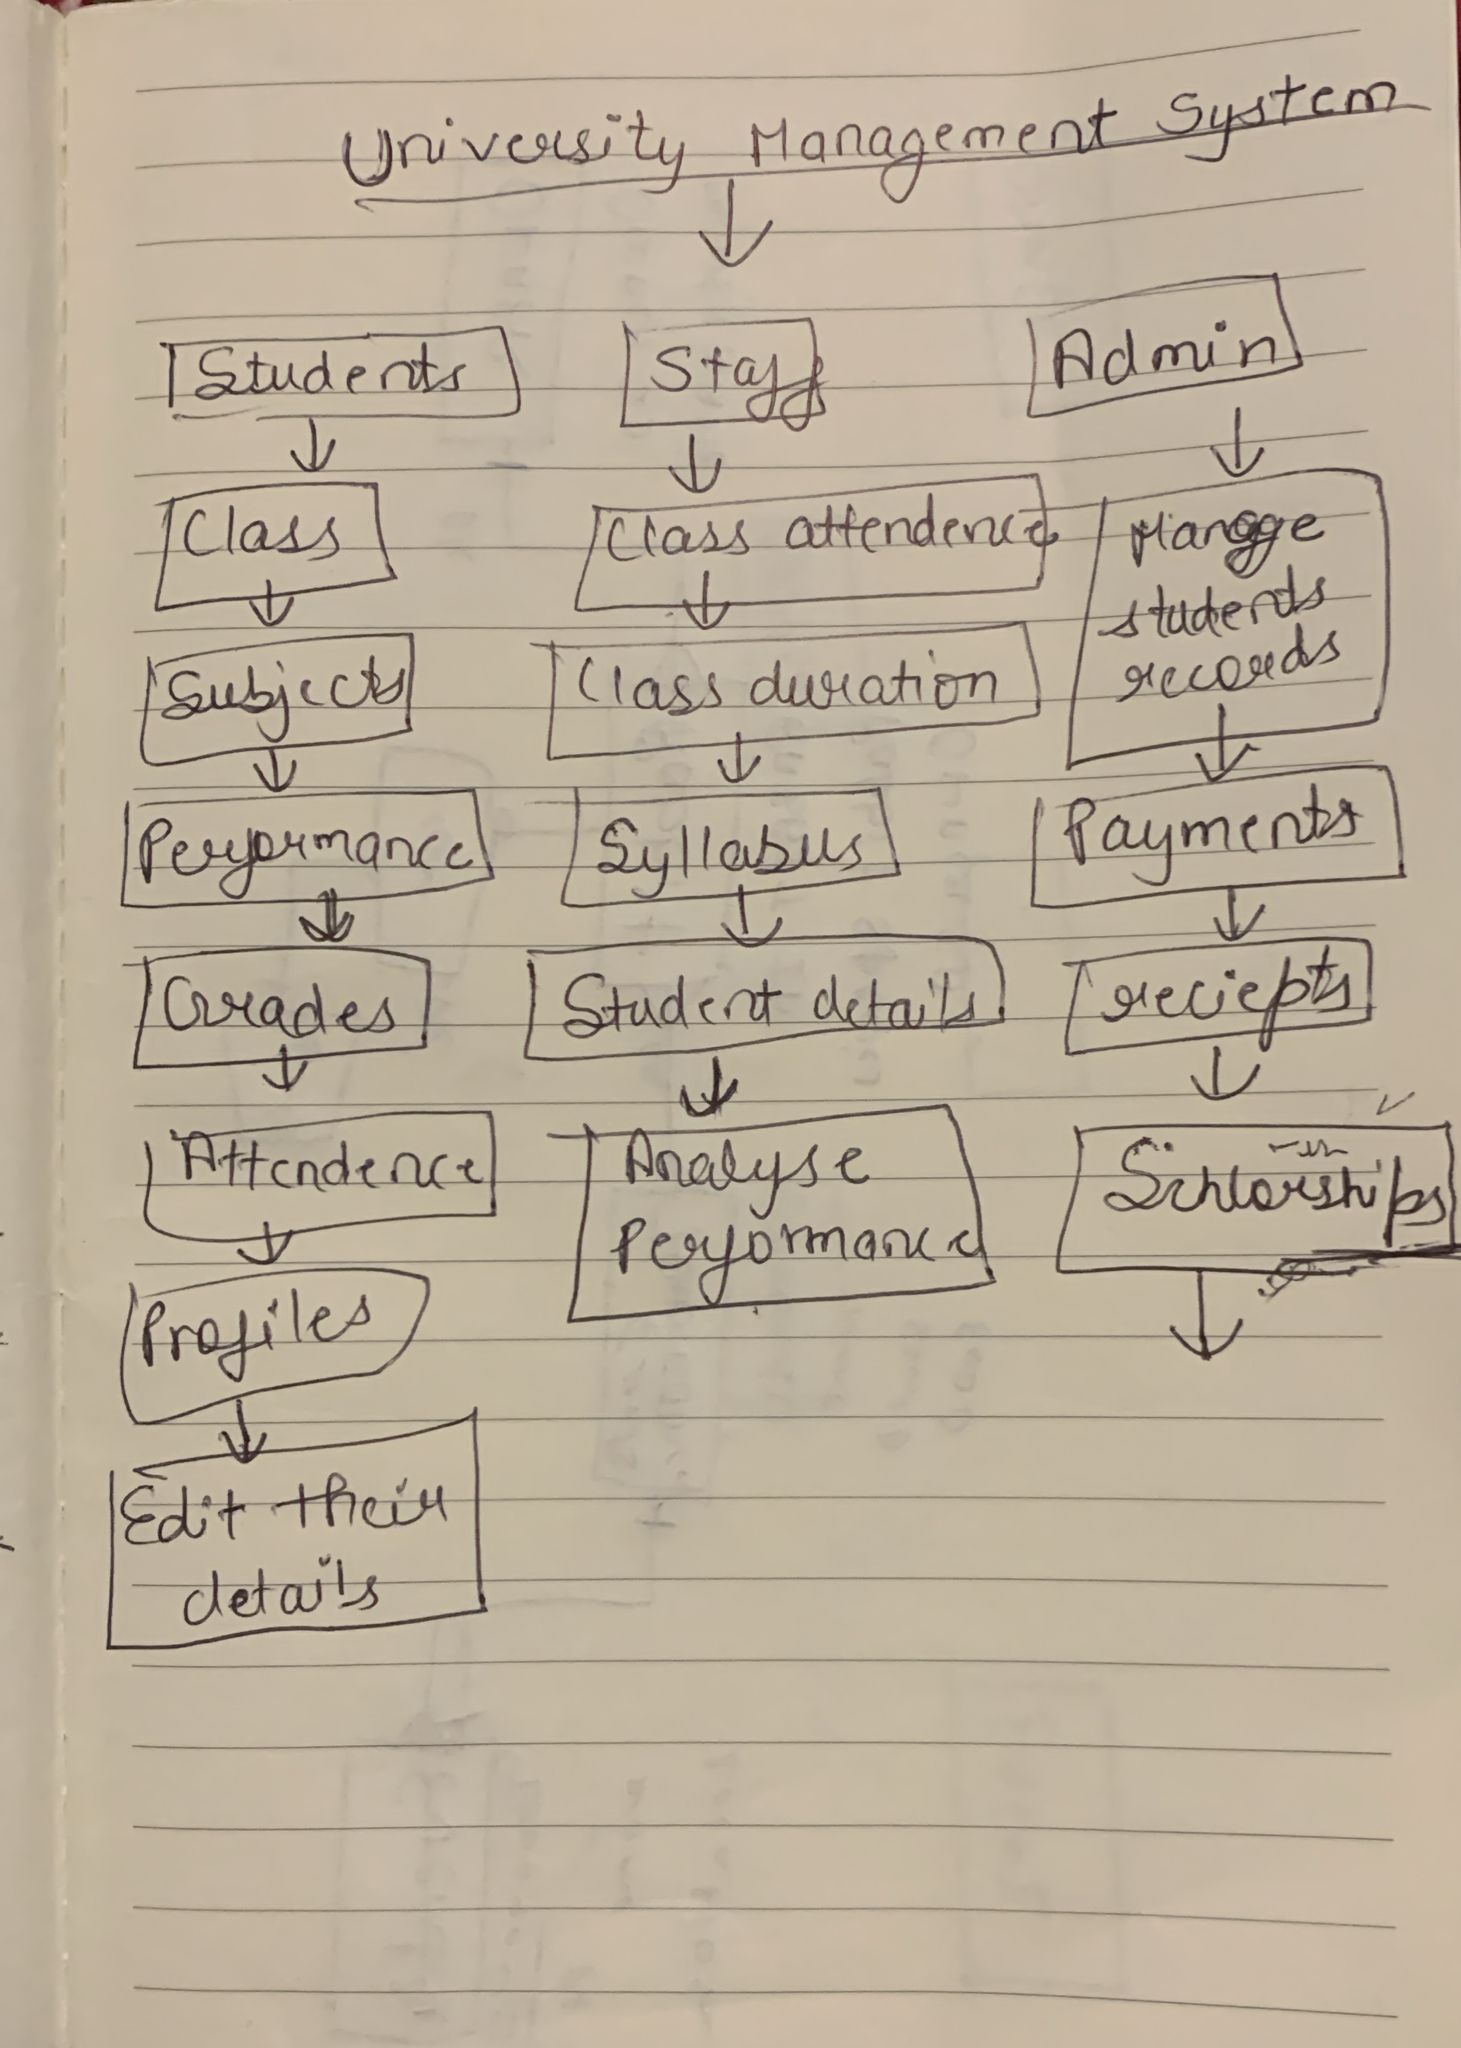 University Management System
Students
Staff
Admin
Class
Subjects
Performance
Grades
Attendence
Profiles
Edit their
details
Class attendence
Class duration
Syllabus
Student details
Analyse
Performance
Manage
students
records
Payments
reciepts